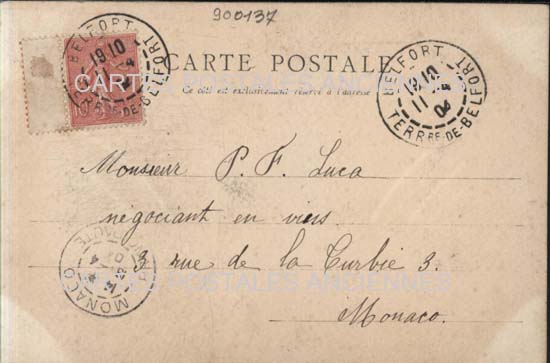 900137
CARTE POSTALE
Ce côté est exclusivement réservé à l'adresse
BELFORT
19 10
TERRRE-DE-BELFORT
BELFORT
19 10
11
04
TERRRE-DE-BELFORT
CARTES POSTALES ANCIENNES
Monsieur P. F. Luca
négociant en vins
3 rue de la Turbie 3.
Monaco.
MONACO
CARTES POSTALES ANCIENNES